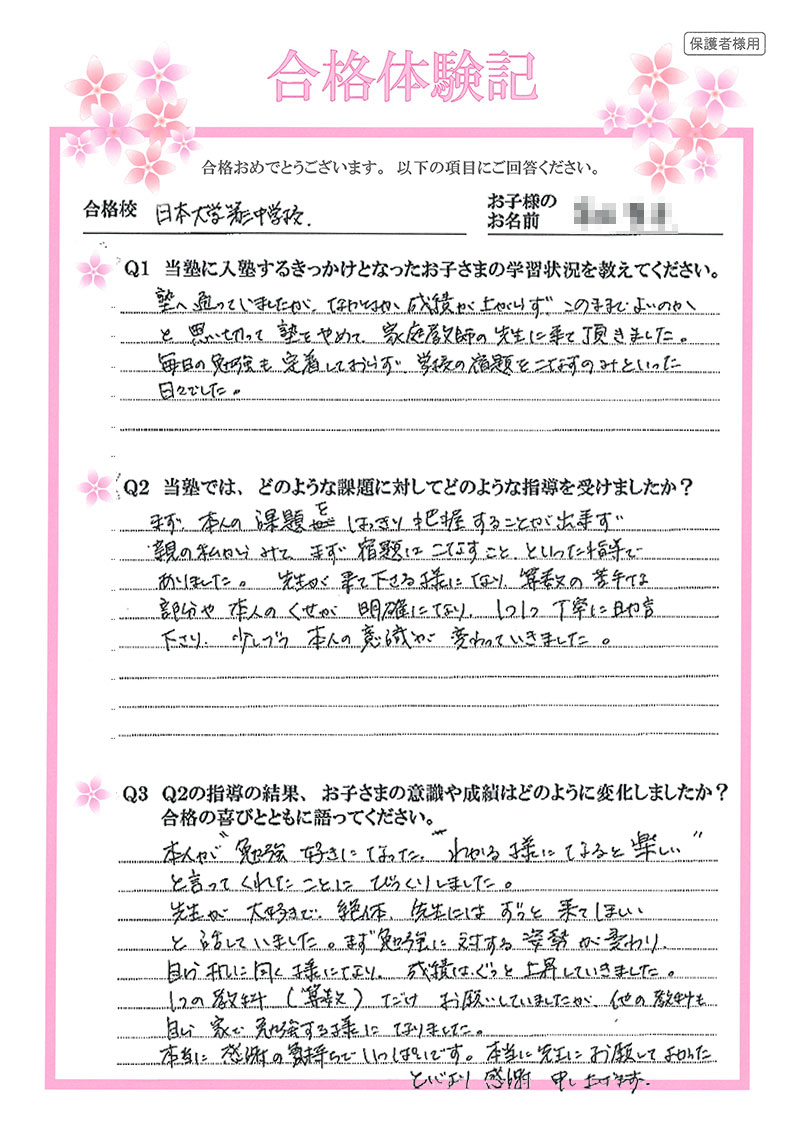 保護者様用
合格体験記
合格おめでとうございます。以下の項目にご回答ください。
合格校 日本大学第三中学校.
お子様の
お名前
Q1 当塾に入塾するきっかけとなったお子さまの学習状況を教えてください。
塾へ通っていましたが、なかなか成績が上がらず、このままでよいのか
と思い切って塾をやめて、家庭教師の先生に来て頂きました。
毎日の勉強も定着しておらず、学校の宿題をこなすのみといった
日々でした。
Q2 当塾では、どのような課題に対してどのような指導を受けましたか？
まず、本人の課題をはっきり把握することが出来ず
親の私からみて、まず宿題はこなすこと、といった指導で
ありました。先生が来て下さる様になり、算数の苦手な
部分や本人のくせが明確になり、1つ1つ丁寧に助言
下さり、少しづつ本人の意識が変わっていきました。
Q3 Q2の指導の結果、お子さまの意識や成績はどのように変化しましたか？
合格の喜びとともに語ってください。
本人が"勉強好きになった。わかる様になると楽しい"
と言ってくれたことにびっくりしました。
先生が大好きで、絶体、先生にはずっと来てほしい
と話していました。まず勉強に対する姿勢が変わり、
自ら机に向く様になり、成績はぐっと上昇していきました。
1つの教科（算数）だけお願いしていましたが、他の教科も
自ら家で勉強する様になりました。
本当に感謝の気持ちでいっぱいです。本当に先生にお願いしてよかった
と心より感謝申し上げます.